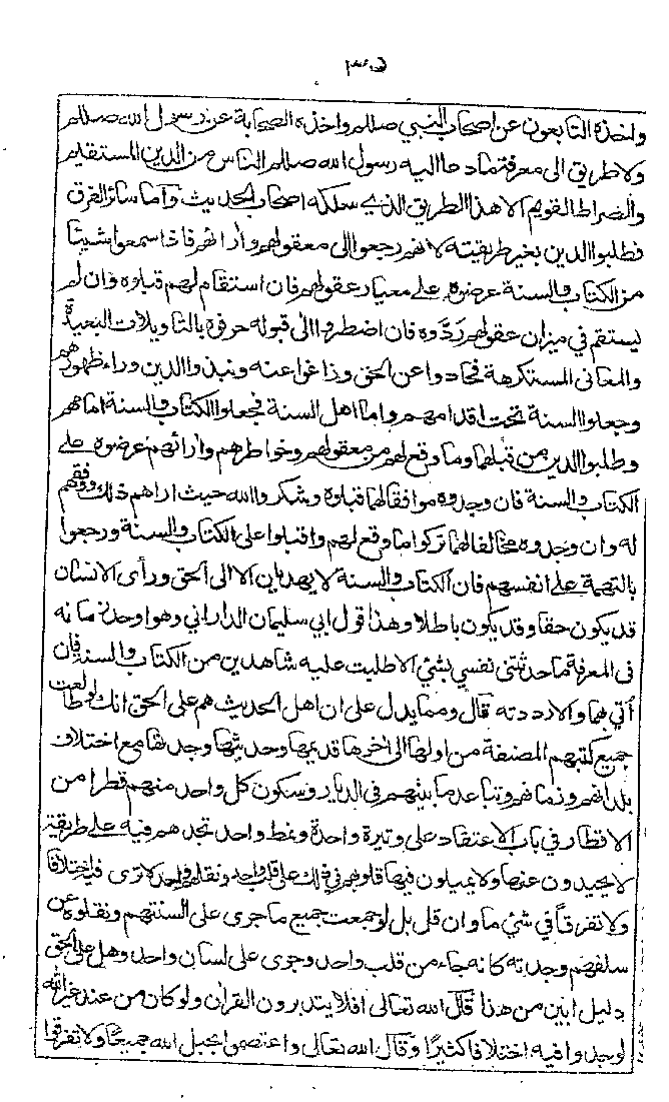 ٣٠٥
واخذه التابعون عن اصحاب النبي صللم واخذه الصحابة عن رسول الله صللم
ولا طريق الى معرفة ما دعا اليه رسول الله صللم الناس من الدين المستقيم
والصراط القويم الا هذا الطريق الذي سلكه اصحاب الحديث واما سائر الفرق
فطلبوا الدين بغير طريقته لانهم رجعوا الى معقولهم وارائهم فاذا سمعوا شيئا
من الكتاب والسنة عرضوه على معيار عقولهم فان استقام لهم قبلوه وان لم
يستقم في ميزان عقولهم ردّوه فان اضطروا الى قبوله حرفوه بالتاويلات البعيدة
والمعاني المستكرهة فحادوا عن الحق وزاغوا عنه ونبذوا الدين وراء ظهورهم
وجعلوا السنة تحت اقدامهم واما اهل السنة فجعلوا الكتاب والسنة امامهم
وطلبوا الدين من قبلهما وما وقع لهم من معقولهم وخواطرهم وارائهم عرضوه على
الكتاب والسنة فان وجدوه موافقا لهما قبلوه وشكروا الله حيث اراهم ذلك ووفقهم
له وان وجدوه مخالفا لهما تركوا ما وقع لهم واقبلوا على الكتاب والسنة ورجعوا
بالتهمة على انفسهم فان الكتاب والسنة لا يهديان الا الى الحق ورأى الانسان
قد يكون حقا وقد يكون باطلا وهذا قول ابي سليمان الداراني وهو اوحد زمانه
في المعرفة ما حدثتني نفسي بشئ الا طلبت عليه شاهدين من الكتاب والسنة فان
أتي بهما والا رددته قال ومما يدل على ان اهل الحديث هم على الحق انك لو طالعت
جميع كتبهم المصنفة من اولها الى اخرها قديمها وحديثها وجدتها مع اختلاف
بلدانهم وزمانهم وتباعد ما بينهم في الديار وسكون كل واحد منهم قطرا من
الاقطار في باب الاعتقاد على وتيرة واحدة ونمط واحد تجدهم فيه على طريقة
لا يحيدون عنها ولا يميلون فيها قلوبهم في ذلك على قلب واحد ونقلهم واحد لا ترى فيه اختلافا
ولا تفرقاً في شئ ما وان قل بل لو جمعت جميع ما جرى على السنتهم ونقلوه عن
سلفهم وجدته كانه جاء من قلب واحد وجرى على لسان واحد وهل على الحق
دليل ابين من هذا قال الله تعالى افلا يتدبرون القران ولو كان من عند غير الله
لوجدوا فيه اختلافا كثيرًا وقال الله تعالى واعتصموا بحبل الله جميعًا ولا تفرقوا